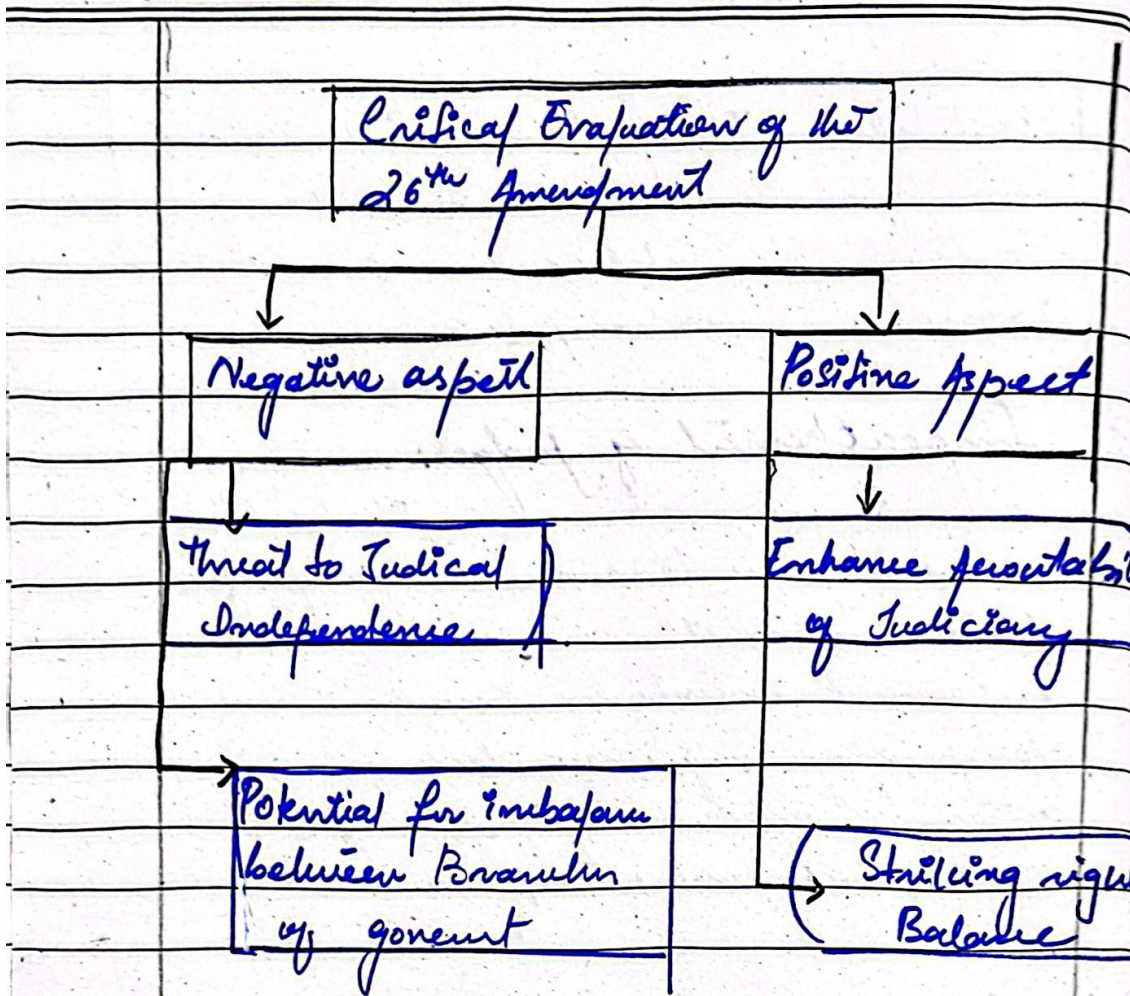 Critical Evaluation of the
26th Amendment
Negative aspect
Positive Aspect
Threat to Judical
Independence
Enhance
of Judiciary
Potential for imbalance
between Branches
of
Striking
Balance